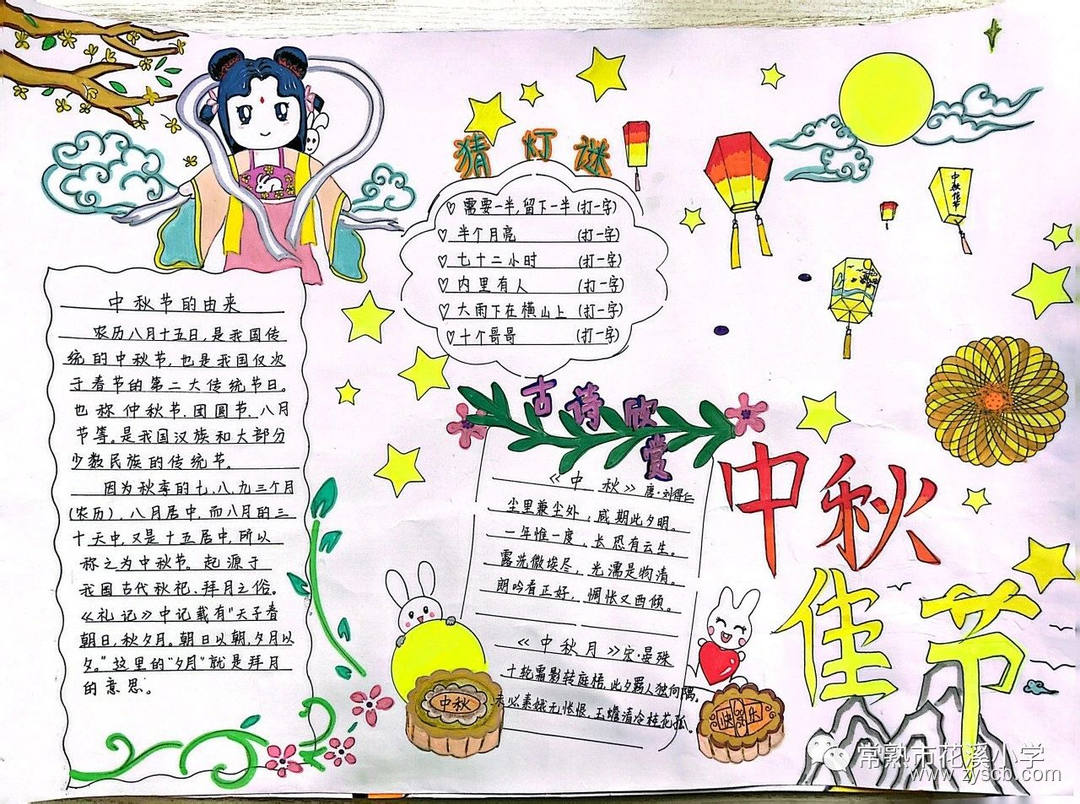 中秋节的由来
农历八月十五日,是我国传
统的中秋节,也是我国仅次
于春节的第二大传统节日。
也称仲秋节.团圆节.八月
节等。是我国汉族和大部分
少数民族的传统节。
因为秋季的七.八.九三个月
(农历),八月居中,而八月的三
十天中,又是十五居中,所以
称之为中秋节。起源于
我国古代秋祀.拜月之俗。
《礼记》中记载有“天子春
朝日,秋夕月。朝日以朝,夕月以
夕。”这里的“夕月”就是拜月
的意思。
猜灯谜
♡需要一半,留下一半(打一字)
♡半个月亮 (打一字)
♡七十二小时 (打一字)
♡内里有人 (打一字)
♡大雨下在横山上(打一字)
♡十个哥哥 (打一字)
古诗欣赏
《中秋》唐·刘得仁
尘里兼尘外,咸期此夕明。
一年惟一度,长恐有云生。
露洗微埃尽,光濡是物清。
朗吟看正好,惆怅又西倾。
《中秋月》宋·晏殊
十轮霜影转庭梧,此夕羁人独向隅。
未必素娥无怅恨,玉蟾清冷桂花孤。
中秋
中秋佳节
中秋
佳节
常熟市花溪小学
www.zyscb.com